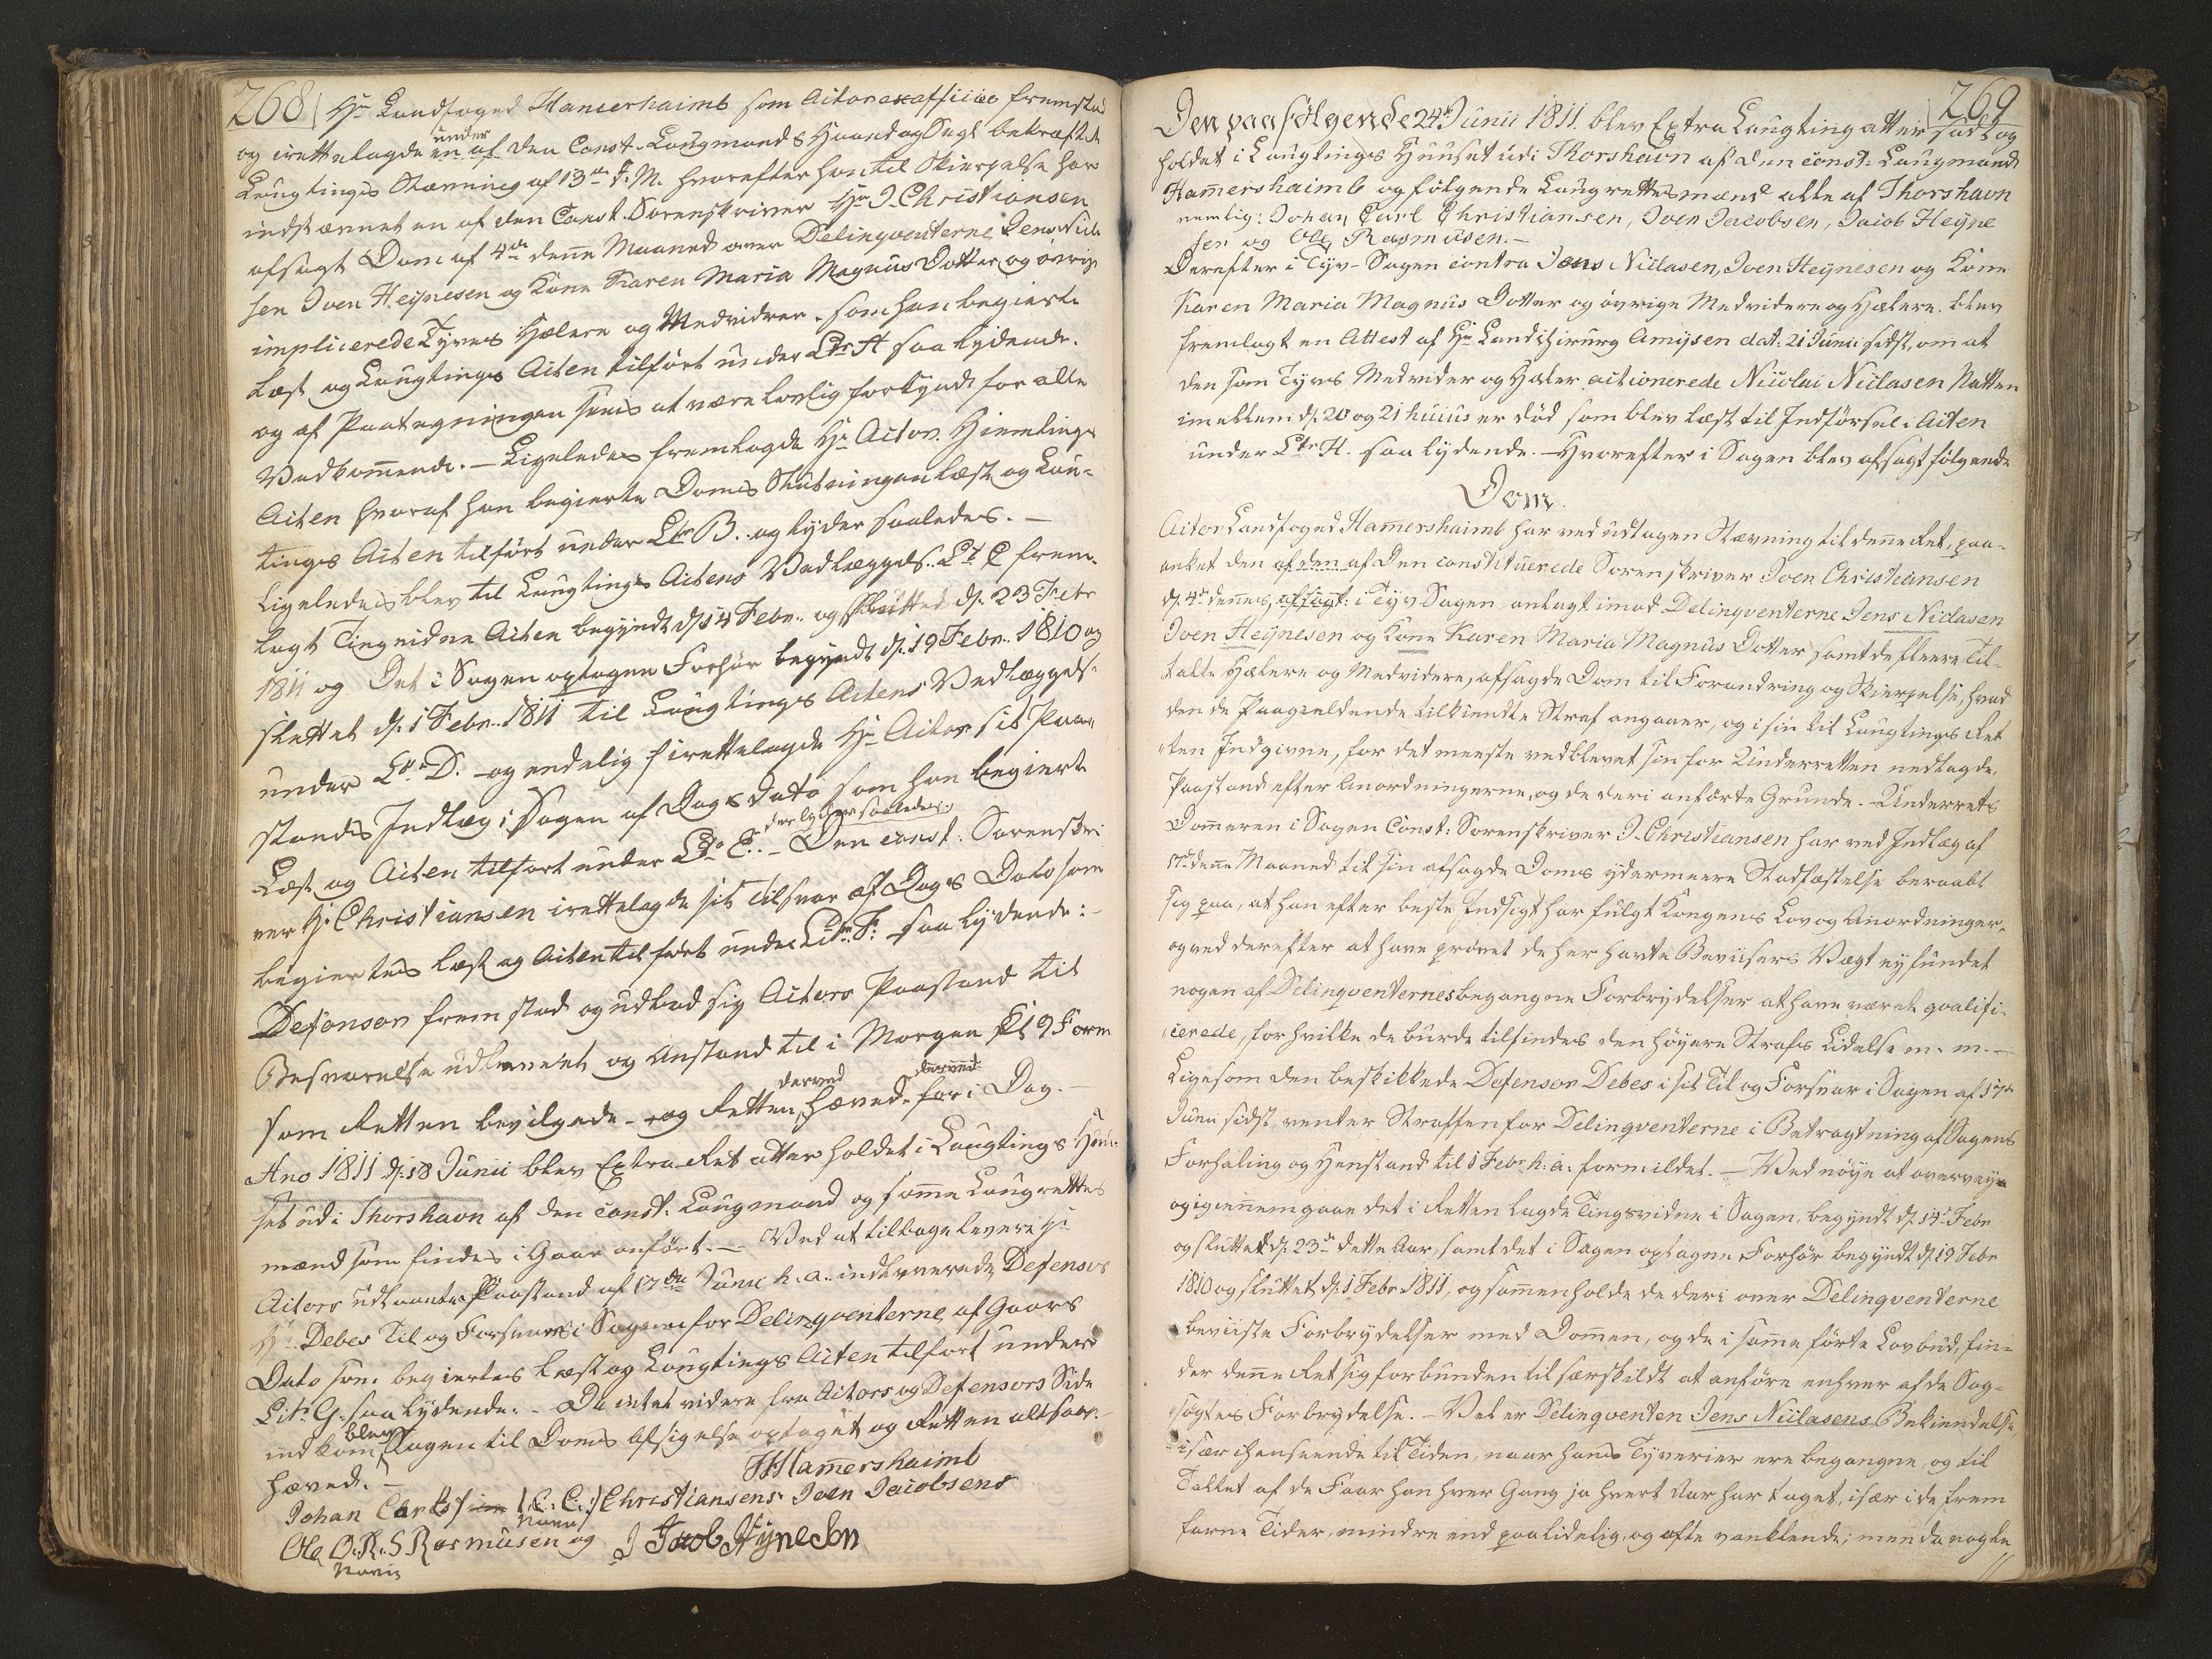 268
Hr Landfoged Hamershaimb som Actor ex officio fremstod
og irettelagde en af under den Const. Laugmands Haand og Segl bekræftede
Laugtings Stævning af 13de d. M. hvorefter han til Skierpelse har
indstævnet en af den Const. Sorenskriver Hr J. Christiansen
afsagt Dom af 4de denne Maaned over Delinqventerne Jens Nicla-
sen Joen Heÿnesen og Kone Karen Maria Magnus Dotter og øvrige
implicerede Tyves Hælere og Medvidere. som han begierte
læst og Laugtings Acten tilført under Ltr A saa lydende.
og af Paategningen sees at være lovlig forkyndt for alle
Vedkommende. – Ligeledes fremlagde Hr Actor Hiemtings
Acten hvoraf han begierte Doms Slutningen læst og Lau-
tings Acten tilført under Ltr B. og lyder saaledes. –
Ligeledes blev til Laugtings Actens Vedlæggels. Lt C frem-
lagt Tingvidne Acten begyndt d. 14 Febr. og sluttet d. 23 Febr
1811 og Det i Sagen optagne Forhør begyndt d. 19 Febr. 1810 og
sluttet d. 1 Febr. 1811 til Laugtings Actens Vedlæggels.
under Ltr D. – og endelig irettelagde Hr Actor sit Paa-
stands Indlæg i Sagen af Dags Dato som han begierte
Læst og Acten tilført under Ltr E. – der lyder saaledes. Den const: Sorenskri-
ver Hr Christiansen irettelagde sit Tilsvar af Dags Dato som
begiertes læst og Acten tilført under Litr. F: saa lydende: –
Defensor fremstod og udbad sig Actors Paastand til
Besvarelse udleveret og Anstand til i Morgen Kl 9 Form
som Retten bevilgede – og Retten derved hæved. for i Dag. –
Ano 1811 d. 18 Junii blev Extra Ret atter holdet i Laugtings Huu-
set udi Thorshavn af den const: Laugmand og samme Laugrettes
mænd som findes i Gaar anført. – Ved at tilbagelevere Hr
Actors udlaante Paastand af 17de Junii h. a. indleverede Defensor
Hr Debes Til og Forsvar i Sagen for Delinqventerne af Gaars
Dato som begiertes læst og Laugtings Acten tilført under
Litr. G. saa lydende. – Da intet videre fra Actors og Defensors Side
indkom blev Sagen til Doms Afsigelse optaget og Retten altsaa
hæved. –
Hamershaimb
Johan Carl (C. C.:) Christiansens Joen Jacobsens
Navn
Ole O. R. S Rasmusen og J Jacob Hÿneson
Navn
269
Den paafølgende 24de Junii 1811. blev Extra Laugting atter sadt og
holdet i Laugtings Huuset udi Thorshavn af den const: Laugmand
Hamershaimb og følgende Laugrettesmænd alle af Thorshavn
nemlig: Johan Carl Christiansen, Joen Jacobsen, Jacob Heÿne
sen og Ole Rasmusen. –
Derefter i Tyv-Sagen contra Jens Niclasen, Joen Heÿnesen og Kone
Karen Maria Magnus Dotter og øvrige Medvidere og Hælere. blev
fremlagt en Attest af Hr Landchirurg Amÿsen dat: 21 Junii sidst, om at
den som Tyvs Medvider og Hæler actionerede Nicolai Niclasen Natten
imellem d. 20 og 21 huius er død som blev læst til Indførsel i Acten
under Ltr H. saa lydende. – Hvorefter i Sagen blev afsagt følgende
Dom.
Actor Landfoged Hamershaimb har ved udtagen Stævning til denne Ret, paa-
anket den af den af Den constituerede Sorenskriver Joen Christiansen
d. 4de dennes, afsagt: i Tyv Sagen anlagt imod Delinqventerne Jens Niclasen
Joen Heÿnesen og Kone Karen Maria Magnus Dotter samt de fleere Til-
talte Hælere og Medvidere, afsagde Dom til Forandring og Skierpelse, hvad
den de Paagieldende tilkiendte Straf angaaer, og i sin til Laugtings Ret
ten Indgivne, for det meeste vedblevet sin for Underretten nedlagde
Paastand efter Anordningerne, og de deri anførte Grunde. – Underrets
Dommeren i Sagen Const: Sorenskriver J. Christiansen har ved Indlæg af
17de denne Maaned til sin afsagde Doms ydermeere Stadfæstelse beraabt
sig paa, at han efter beste Indsigt har fulgt Kongens Lov og Anordninger,
og ved derefter at have prøvet de her havte Beviisers Vægt ey fundet
nogen af Delinqventernes begangne Forbrydelser at have været qvalifi-
cerede, for hvilke de burde tilfindes den høyere Strafs Lidelse m. m. –
Ligesom den beskikkede Defensor Debes i sit Til og Forsvar i Sagen af 17de
Junii sidst, venter Straffen for Delinqventerne i Betragtning af Sagens
Forhaling og Henstand til 1 Febr. h. a. formildet. – Ved nøye at overveye
og igiennemgaae det i Retten lagde Tingsvidne i Sagen, begyndt d. 14de Febr
og sluttet d. 23de dette Aar, samt det i Sagen optagne Forhør begyndt d. 19 Febr
1810 og sluttet d. 1 Febr. 1811, og sammenholde de deri over Delinqventerne
beviiste Forbrydelser med Dommen, og de i samme førte Lovbud, fin-
der denne Ret sig forbunden til særskildt at anføre enhver af de Sag-
søgtes Forbrydelse. – Vel er Delinqventen Jens Niclasens Bekiendelse
især i henseende til Tiden, naar hans Tyverier ere begangne, og til
Tallet af de Faar han hver Gang ja hvert Aar har taget, især i de frem
farne Tider, mindre end paalidelig, og ofte vanklende; men da nogle